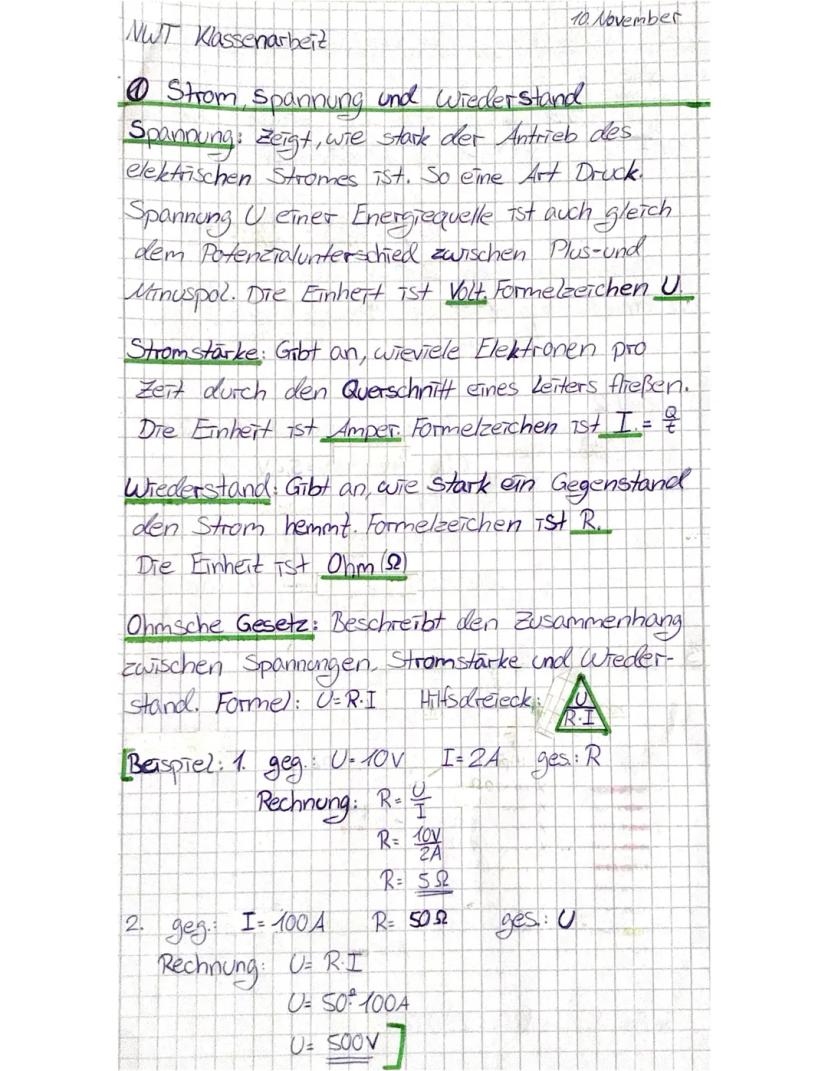 10. November
NWT Klassenarbeit
① Strom, Spannung und Wiederstand
Spannung: Zeigt, wie stark der Antrieb des
elektrischen Stromes ist. So eine Art Druck.
Spannung U einer Energiequelle ist auch gleich
dem Potenzialunterschied zwischen Plus-und
Minuspol. Die Einheit ist Volt. Formelzeichen U.
Stromstärke: Gibt an, wieviele Elektronen pro
Zeit durch den Querschnitt eines Leiters fließen.
Die Einheit ist Amper. Formelzeichen ist I. = Q/t
Wiederstand: Gibt an, wie stark ein Gegenstand
den Strom hemmt. Formelzeichen ist R.
Die Einheit ist Ohm (Ω)
Ohmsche Gesetz: Beschreibt den Zusammenhang
zwischen Spannungen, Stromstärke und Wieder-
stand. Formel: U=R·I Hilfsdreieck: U
R·I
[Beispiel: 1. geg.: U=10V I=2A ges.: R
Rechnung: R= U/I
R= 10V/2A
R= 5Ω
2. geg.: I=100A R= 50Ω ges.: U
Rechnung: U= R·I
U= 50Ω·100A
U= 500V]